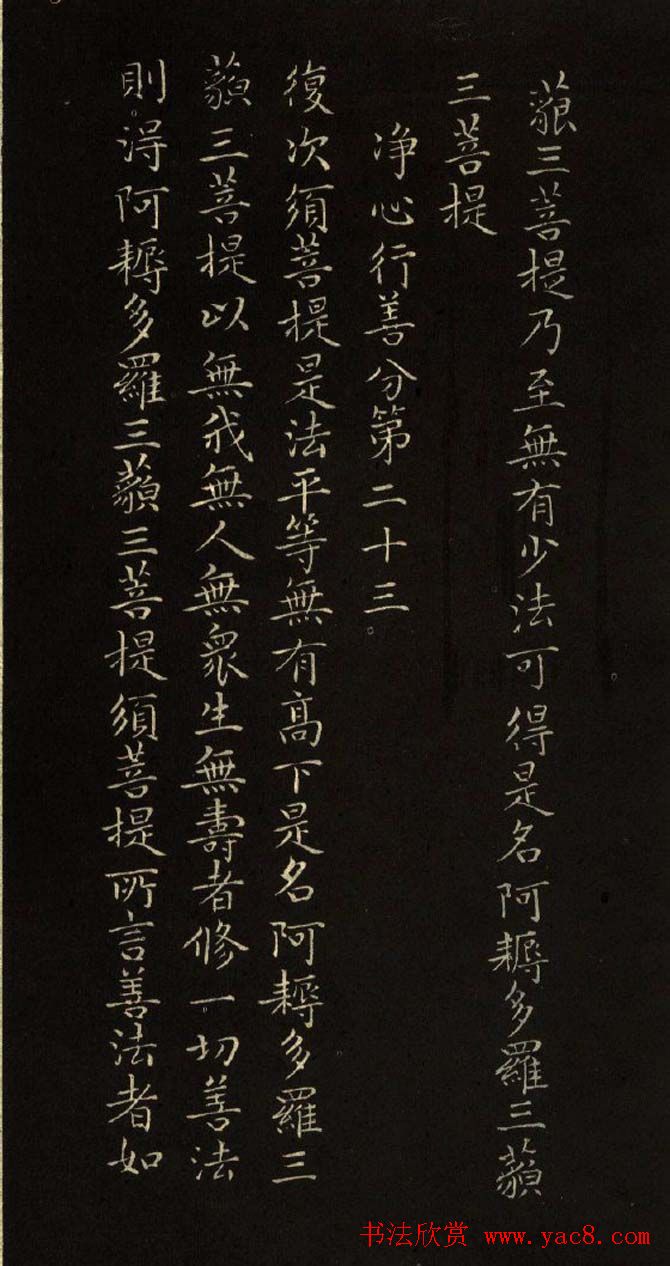 藐三菩提乃至無有少法可得是名阿耨多羅三藐
三菩提
净心行善分第二十三
復次須菩提是法平等無有高下是名阿耨多羅三
藐三菩提以無我無人無衆生無壽者修一切善法
則得阿耨多羅三藐三菩提須菩提所言善法者如
书法欣赏 www.yac8.com